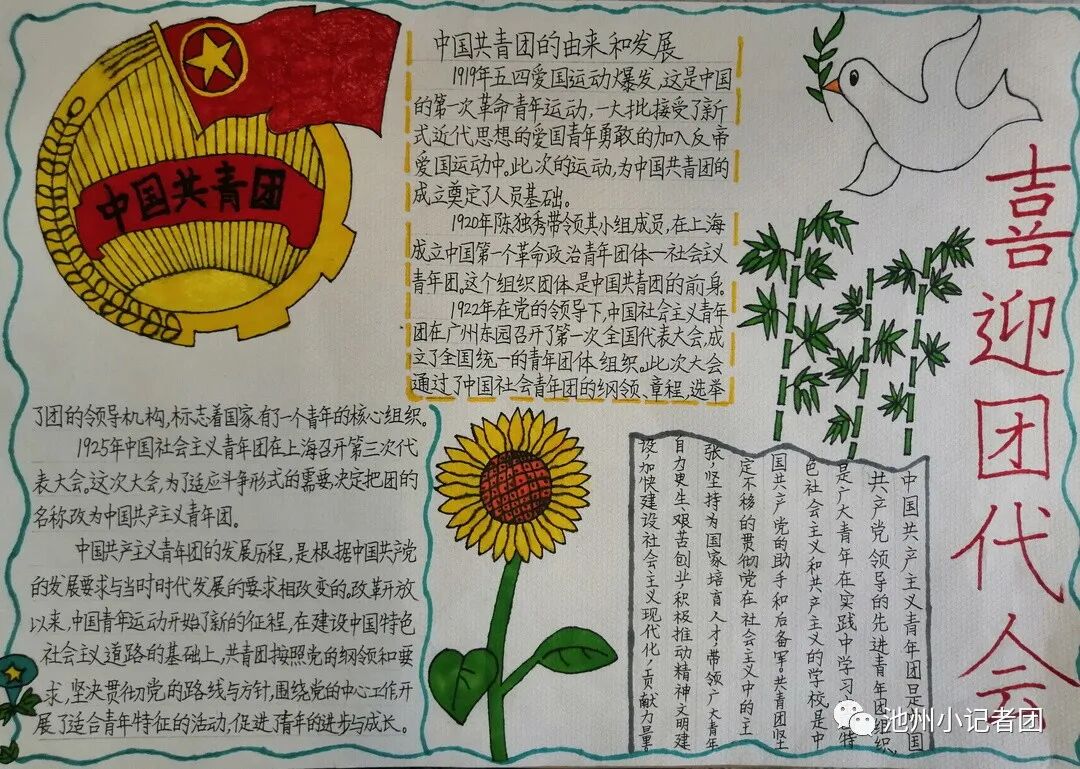 中国共青团
中国共青团的由来和发展
1919年五四爱国运动爆发，这是中国
的第一次革命青年运动，一大批接受了新
式近代思想的爱国青年勇敢的加入反帝
爱国运动中。此次的运动，为中国共青团的
成立奠定了人员基础。
1920年陈独秀带领其小组成员，在上海
成立中国第一个革命政治青年团体一社会主义
青年团，这个组织团体是中国共青团的前身。
1922年在党的领导下，中国社会主义青年
团在广州东园召开了第一次全国代表大会，成
立了全国统一的青年团体组织。此次大会
通过了中国社会青年团的纲领、章程，选举
了团的领导机构，标志着国家有了一个青年的核心组织。
1925年中国社会主义青年团在上海召开第三次代
表大会。这次大会，为了适应斗争形式的需要，决定把团的
名称改为中国共产主义青年团。
中国共产主义青年团的发展历程，是根据中国共产党
的发展要求与当时时代发展的要求相改变的。改革开放
以来，中国青年运动开始了新的征程，在建设中国特色
社会主义道路的基础上，共青团按照党的纲领和要
求，坚决贯彻党的路线与方针，围绕党的中心工作开
展了适合青年特征的活动，促进了青年的进步与成长。
喜迎团代会
中国共产主义青年团是中国
共产党领导的先进青年团组织，
是广大青年在实践中学习中特
色社会主义和共产主义的学校，是中
国共产党的助手和后备军。共青团坚
定不移的贯彻党在社会主义中的主
张，坚持为国家培育人才，带领广大青年
自力更生、艰苦创业，积极推动精神文明建
设，加快建设社会主义现代化，贡献力量。
池州小记者团